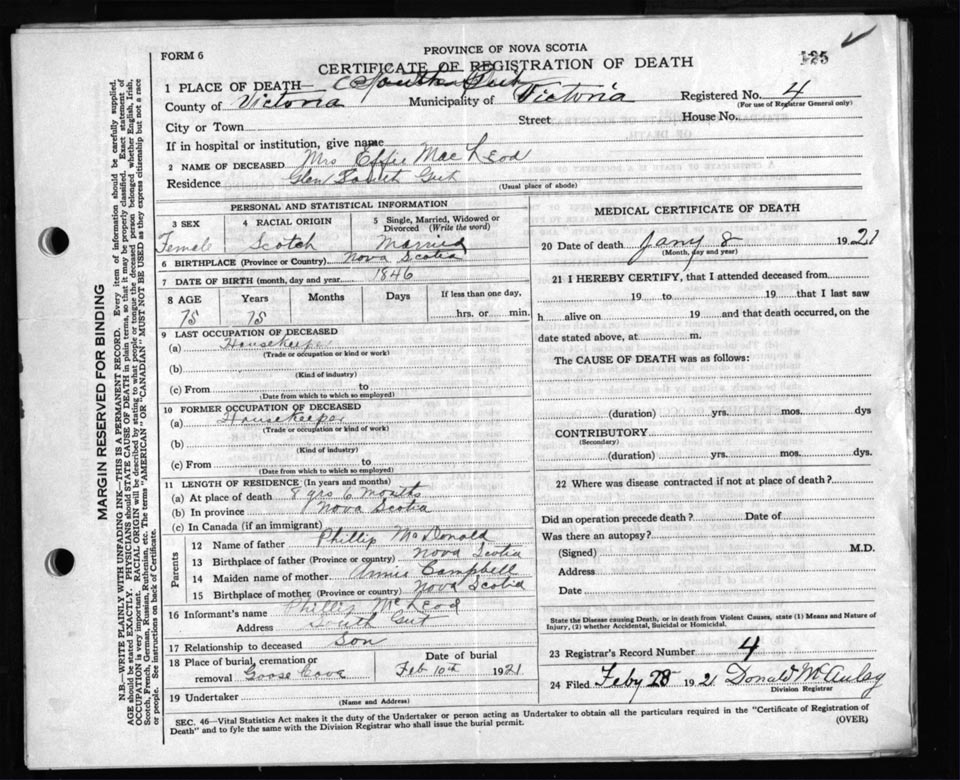 FORM 6
PROVINCE OF NOVA SCOTIA
CERTIFICATE OF REGISTRATION OF DEATH
125
1 PLACE OF DEATH South Gut
County of Victoria Municipality of Victoria Registered No. 4
(For use of Registrar General only)
City or Town Street House No.
If in hospital or institution, give name
2 NAME OF DECEASED Mrs Effie Mac Leod
Residence Glen South Gut
(Usual place of abode)
PERSONAL AND STATISTICAL INFORMATION
3 SEX 4 RACIAL ORIGIN 5 Single, Married, Widowed or Divorced (Write the word)
Female Scotch Married
6 BIRTHPLACE (Province or Country) Nova Scotia
7 DATE OF BIRTH (month, day and year) 1846
8 AGE Years Months Days If less than one day,
75 75 hrs. or min.
9 LAST OCCUPATION OF DECEASED
(a) Housekeeper
(Trade or occupation or kind or work)
(b)
(Kind of industry)
(c) From to
(Date from which to which so employed)
10 FORMER OCCUPATION OF DECEASED
(a) Housekeeper
(Trade or occupation or kind of work)
(b)
(Kind of industry)
(c) From to
(Date from which to which so employed)
11 LENGTH OF RESIDENCE (In years and months)
(a) At place of death 8 yrs 6 months
(b) In province Nova Scotia
(c) In Canada (if an immigrant)
Parents
12 Name of father Phillip McDonald
13 Birthplace of father (Province or country) Nova Scotia
14 Maiden name of mother Annie Campbell
15 Birthplace of mother (Province or country) Nova Scotia
16 Informant's name Phillip McLeod
Address South Gut
17 Relationship to deceased Son
18 Place of burial, cremation or removal Goose Cove Date of burial Feb 10th 1921
19 Undertaker
(Name and Address)
MEDICAL CERTIFICATE OF DEATH
20 Date of death Jany 8 1921
(Month, day and year)
21 I HEREBY CERTIFY, that I attended deceased from
19 to 19 that I last saw
h alive on 19 and that death occurred, on the
date stated above, at m.
The CAUSE OF DEATH was as follows:
(duration) yrs. mos. dys
CONTRIBUTORY
(Secondary)
(duration) yrs. mos. dys.
22 Where was disease contracted if not at place of death?
Did an operation precede death? Date of
Was there an autopsy?
(Signed) M.D.
Address
Date
State the Disease causing Death, or in death from Violent Causes, state (1) Means and Nature of
Injury, (2) whether Accidental, Suicidal or Homicidal.
23 Registrar's Record Number 4
24 Filed Feby 28 1921 Donald McAulay
Division Registrar
SEC. 46—Vital Statistics Act makes it the duty of the Undertaker or person acting as Undertaker to obtain all the particulars required in the "Certificate of Registration of
Death" and to fyle the same with the Division Registrar who shall issue the burial permit.
(OVER)
MARGIN RESERVED FOR BINDING
N.B.—WRITE PLAINLY WITH UNFADING INK—THIS IS A PERMANENT RECORD. Every item of information should be carefully supplied.
AGE should be stated EXACTLY. PHYSICIANS should STATE CAUSE OF DEATH in plain terms, so that it may be properly classified. Exact statement of
OCCUPATION is very important. RACIAL ORIGIN will be described by stating to what people or tongue the deceased person belonged whether English, Irish,
Scotch, French, German, Russian, Ruthenian, etc. The terms "AMERICAN" or "CANADIAN" MUST NOT BE USED as they express citizenship but not a race
or people. See instructions on back of Certificate.